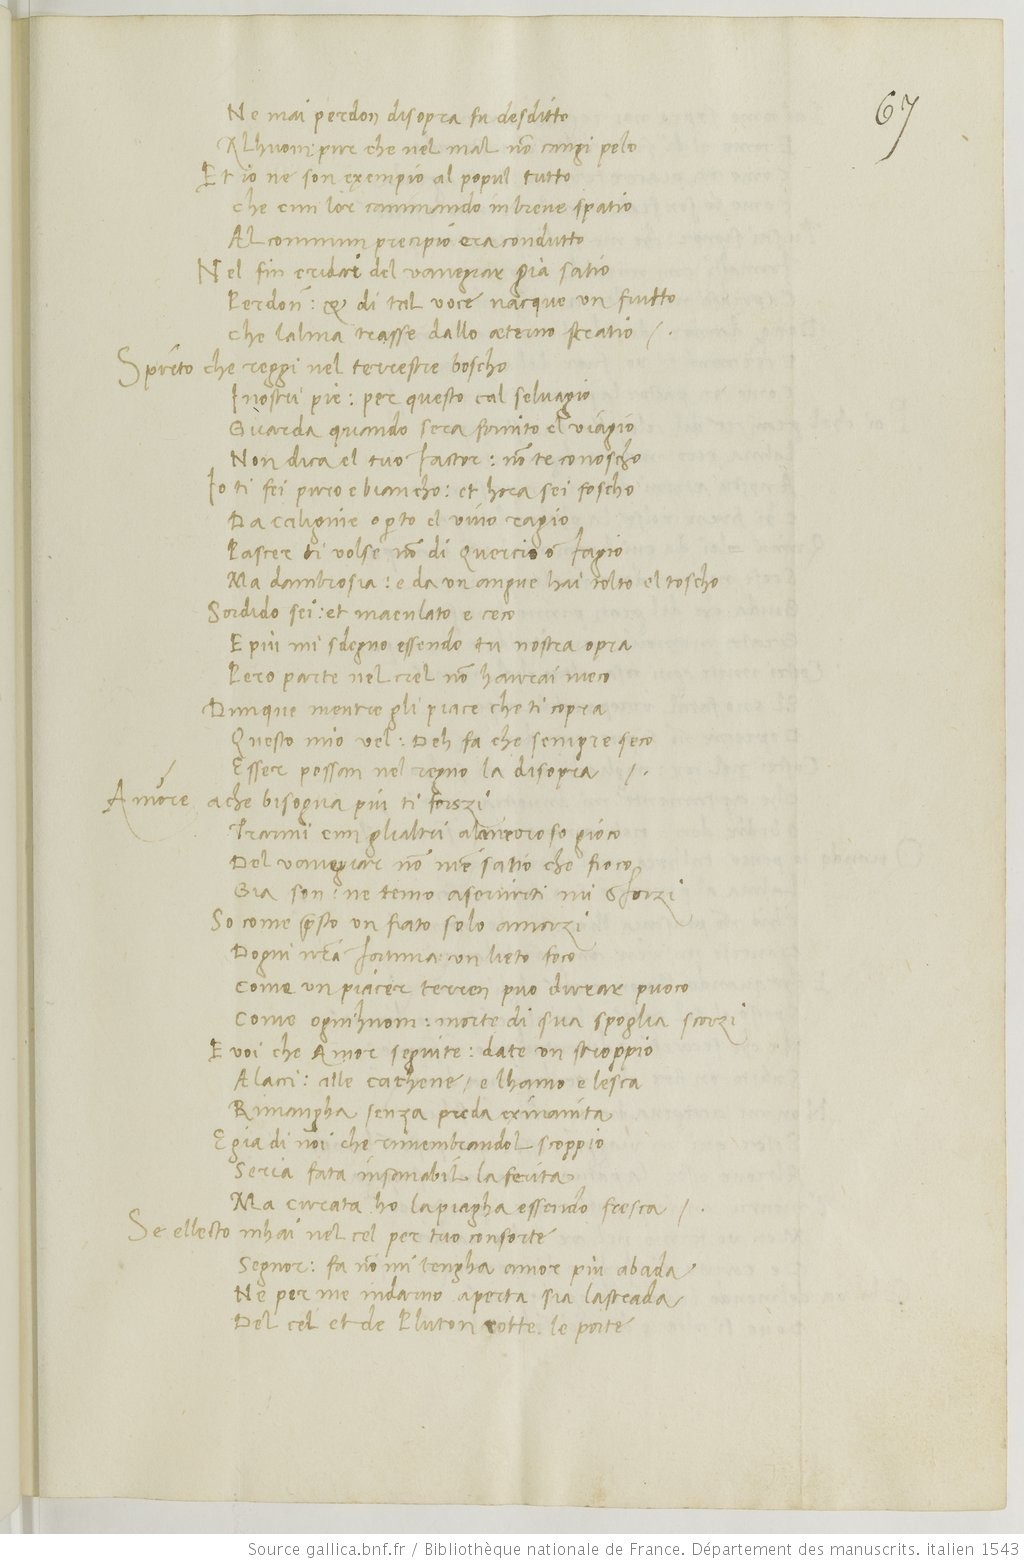 67
Ne mai perdon disopra fu desditto
Alhuom pur che nel mal nõ cangi pelo
Et io ne son exempio al popul tutto
che cum lor caminando in breve spatio
Al commun precipio era condutto
Nel fin cridai del vanegiar già satio
Perdon: & di tal voce nacque un frutto
che lalma trasse dallo æterno stratio /.
Spirito che reggi nel terrestre boscho
I nostri pie: per questo cal selvagio
Guarda quando sera fornito el viagio
Non dica el tuo factor: nõ te conoscho
Io ti fei puro e biancho: et hora sei foscho
Da caligine opto el vivo ragio
Pascer ti volse nõ di Quercio o fagio
Ma dambrosia: e da un angue hai tolto el toscho
Sordido sei: et maculato e ceco
E più mi sdegno essendo tu nostra opra
Pero parte nel ciel nõ haurai meco
Dunque mentre gli piace che ti copra
Questo mio vel: Deh fa che sempre seco
Esser possan nel regno la disopra /.
Amore ache bisogna più ti forzi
Trarmi cum glialtri alamoroso gioco
Del vanegiar nõ mē satio che fioco
Gia son: ne temo aservirti mi sforzi
So come p̃sto un fiato solo amorzi
Dogni nr̃a fortuna con lieto foco
Come un piacer terren puo durar puoco
Come ognihuom: morte di sua spoglia scorzi
E voi che Amor seguite: date un stroppio
A lacci: alle cathene / e lhamo e lesca
Rimangha senza preda exinanita
E gia di noi che rimembrandol scoppio
Seria fata insanabil la ferita
Ma curata ho la piagha essendo fresca /.
Se ellecto mhai nel cel per tuo consorte
Segnor: fa nõ mi tengha amor più abada
Ne per me indarno aperta sia lastrada
Del cel et de Pluton rotte le porte
Source gallica.bnf.fr / Bibliothèque nationale de France. Département des manuscrits. italien 1543